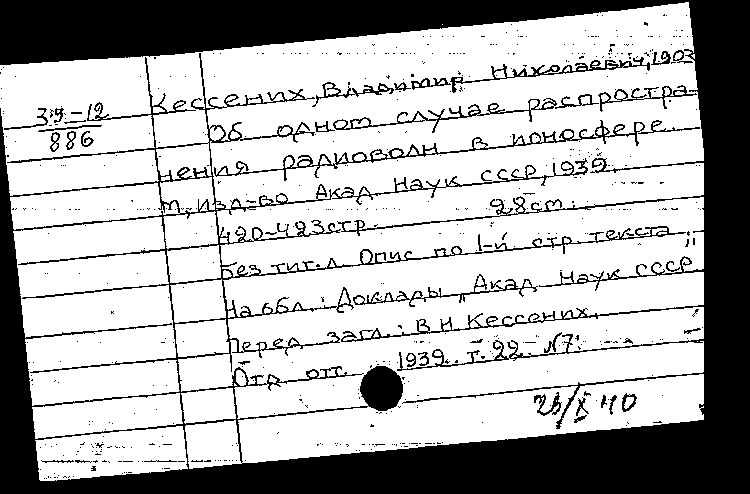 39-12
886
Кессених, Владимир Николаевич, 1903
Об одном случае распростра-
нения радиоволн в ионосфере.
М, изд-во Акад. Наук СССР, 1939.
420-423 стр. 28 cm.
Без тит.л Опис по 1-й стр. текста
На обл.: Доклады „Акад. Наук СССР"
Перед загл.: В Н Кессених.
Отд отт. 1939. т. 22. N7.
23/X 40